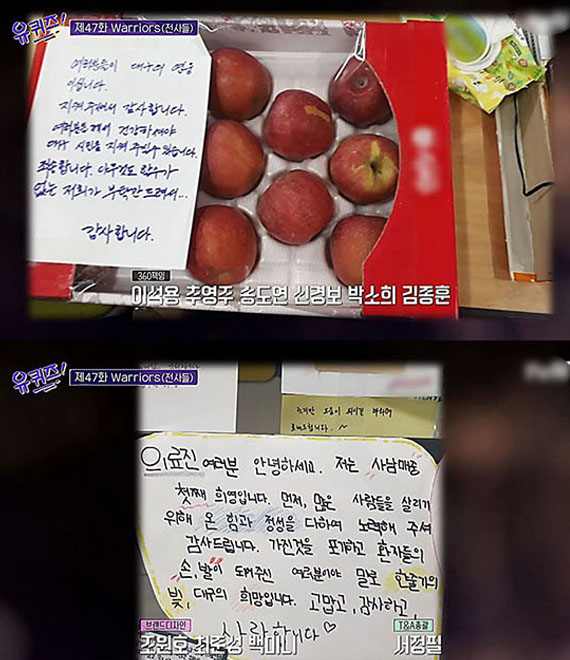 유퀴즈!
제47화 Warriors(전사들)
여러분들이 대구의 영웅
이십니다.
지켜주셔서 감사합니다.
여러분들께서 건강하셔야
대구 시민을 지켜 주실수 있습니다.
죄송합니다. 아무것도 할수가
없는 저희가 부탁만 드려서...
감사합니다.
360책임
이석용 추영주 송도연 신경보 박소희 김종훈
유퀴즈!
제47화 Warriors(전사들)
tvN
의료진 여러분 안녕하세요. 저는 사남매중
첫째 희영입니다. 먼저, 많은 사람들을 살리기
위해 온 힘과 정성을 다하여 노력해 주셔
감사드립니다. 가진것을 포기하고 환자들의
손, 발이 되어주신 여러분이야 말로 한줄기의
빛, 대구의 희망입니다. 고맙고, 감사하고,
사랑합니다♡
브랜드디자인
조원호 최준성 백미니
T&A총괄
서정필